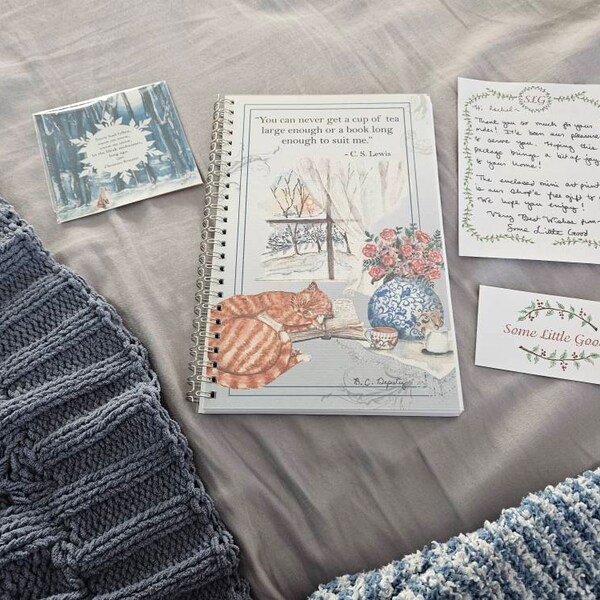 "You can never get a cup of tea
large enough or a book long
enough to suit me."
- C. S. Lewis
SLG
Thank you so much for your
order! It's been our pleasure
to serve you. Hoping this
package brings a bit of joy
to your home!
The enclosed mini art print
is our shop's free gift to
We hope you enjoy!
Very Best Wishes from
Some Little Good
Some Little Goo